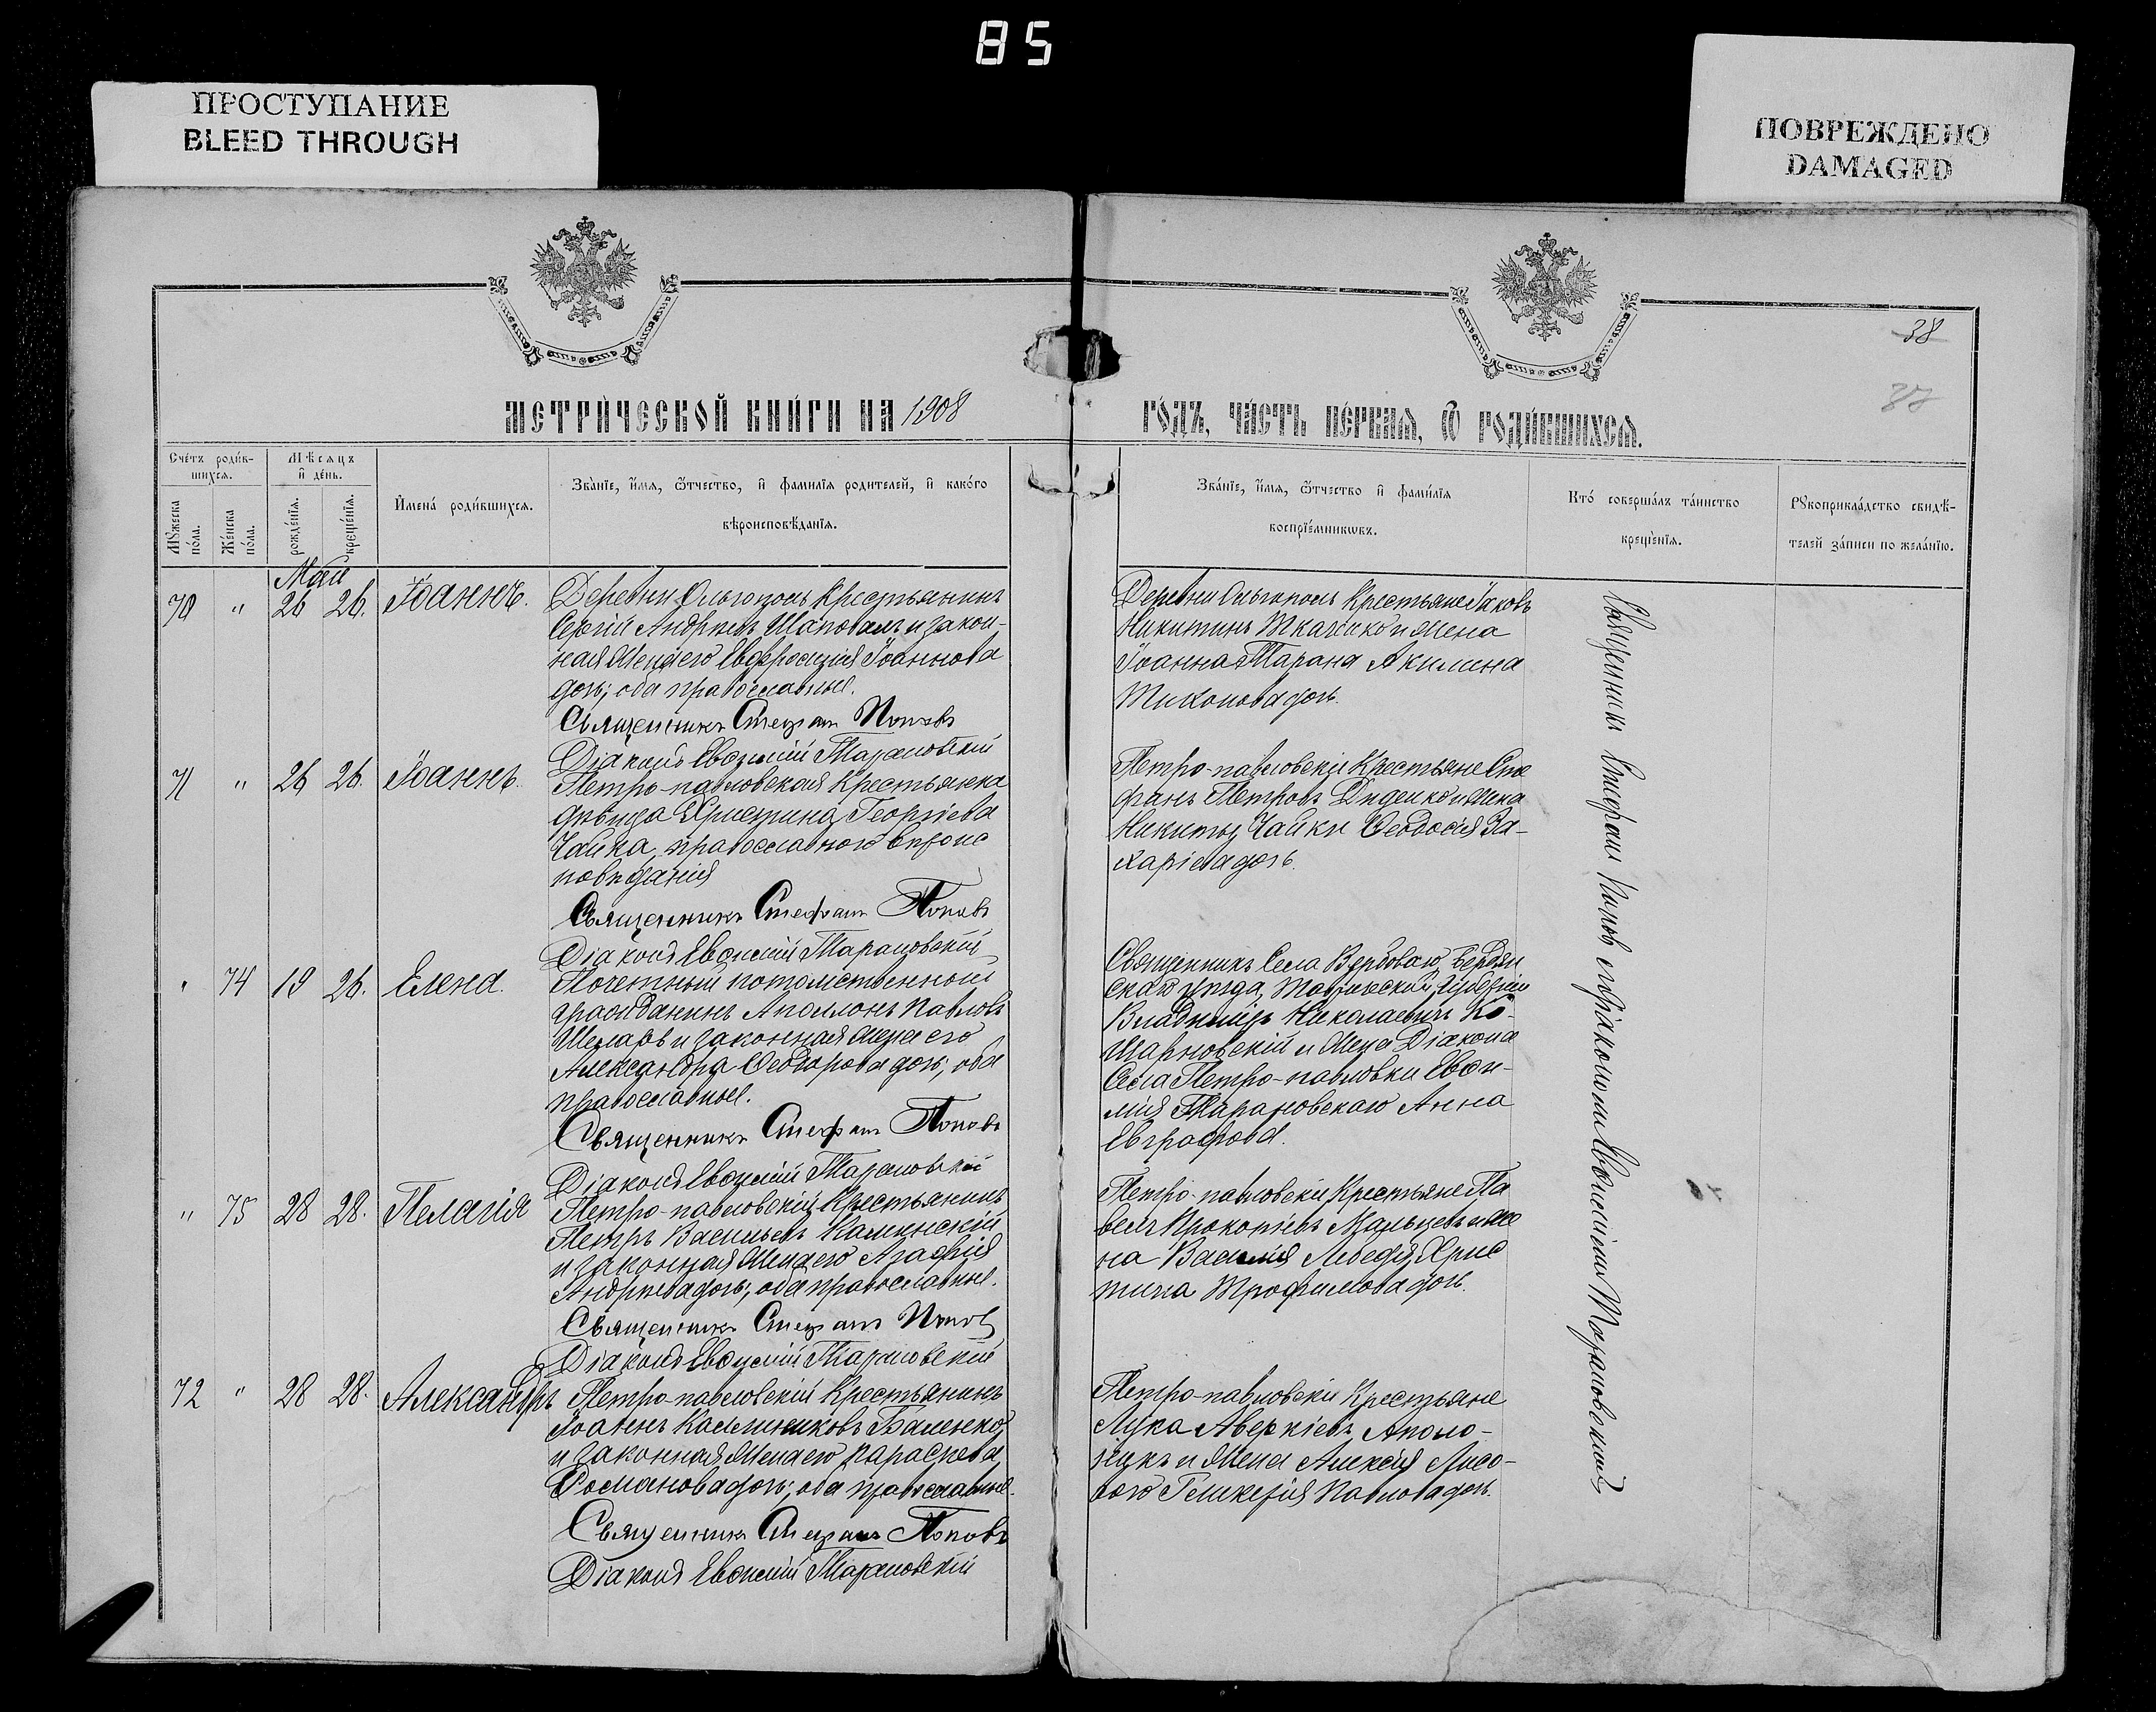 85
ПРОСТУПАНИЕ
BLEED THROUGH
ПОВРЕЖДЕНО
DAMAGED
38
37
МЕТРИ́ЧЕСКОЙ КНИ́ГИ НА 1908
ГО́ДЪ, ЧА́СТЬ ПЕ́РВАѦ, Ѿ РОДИ́ВШИХСѦ.
Сче́тъ роди́в-
шихсѧ.
Мꙋ́жеска по́ла.
Же́нска по́ла.
Мѣ́сѧцъ
и҆ де́нь.
рожде́нїѧ.
креще́нїѧ.
И҆мена́ роди́вшихсѧ.
Зва́нїе, и҆́мѧ, ѻ҆́тчество, и҆ фами́лїѧ роди́телей, и҆ како́гѡ
вѣроисповѣ́данїѧ.
Зва́нїе, и҆́мѧ, ѻ҆́тчество и҆ фами́лїѧ
воспрїе́мникѡвъ.
Кто́ соверша́лъ та́инство
креще́нїѧ.
Рꙋкоприкла́дство свидѣ́-
телей за́писи по жела́нїю.
Май
70 " 26 26. Іоаннъ.
Деревни Ольгополь Крестьянинъ
Сергій Андреевъ Шаповалъ и закон-
ная жена его Евфросинія Іоаннова
дочь; оба православные.
Священникъ Стефанъ Поповъ
Діаконъ Евѳимій Тарановскій
Деревни Ольгополь Крестьяне Іаковъ
Никитинъ Ткаченко и жена
Іоанна Тарана Акилина
Тихонова дочь.
71 " 26 26. Іоаннъ.
Петро-павловская Крестьянка
дѣвица Христина Георгіева
Чайка, православного вѣроис
повѣданія
Священникъ Стефанъ Поповъ
Діаконъ Евѳимій Тарановскій
Петро-павловскіе Крестьяне Сте
фанъ Петровъ Диденко и жена
Никиты Чайки Ѳеодосія За-
харіева дочь.
" 74 19 26. Елена.
Почетный потомственный
гражданинъ Аполлонъ Павловъ
и законная жена его
Александра Ѳеодорова дочь; оба
православные.
Священникъ Стефанъ Поповъ
Діаконъ Евѳимій Тарановскій
Священникъ Села Вербоваго, Бердян
скаго уѣзда, Таврической Губерніи
Владиміръ Николаевичъ Ко-
шарновскій и жена Діакона
Села Петро-павловки Евѳи-
мія Тарановскаго Анна
Евграфова.
" 75 28 28. Пелагія
Петро-павловскій Крестьянинъ
Петръ Васильевъ Калинскій
и законная жена его Агафія
Андреева дочь; оба православные.
Священникъ Стефанъ Поповъ
Діаконъ Евѳимій Тарановскій
Петро-павловскіе Крестьяне Па
велъ Прокопіевъ Мальцевъ и же
на Василія Лебедя Хрис
тина Трофимова дочь.
72 " 28 28. Александръ
Петро-павловскій Крестьянинъ
Іоаннъ
и законная жена его Параскева
Романова дочь; оба православные.
Священникъ Стефанъ Поповъ
Діаконъ Евѳимій Тарановскій
Петро-павловскіе Крестьяне
Лука Аверкіевъ Аполо-
нукъ и жена Алексія Лисо-
вого Гликерія Павлова дочь.
Священникъ Стефанъ Поповъ съ діакономъ Евѳиміемъ Тарановскимъ